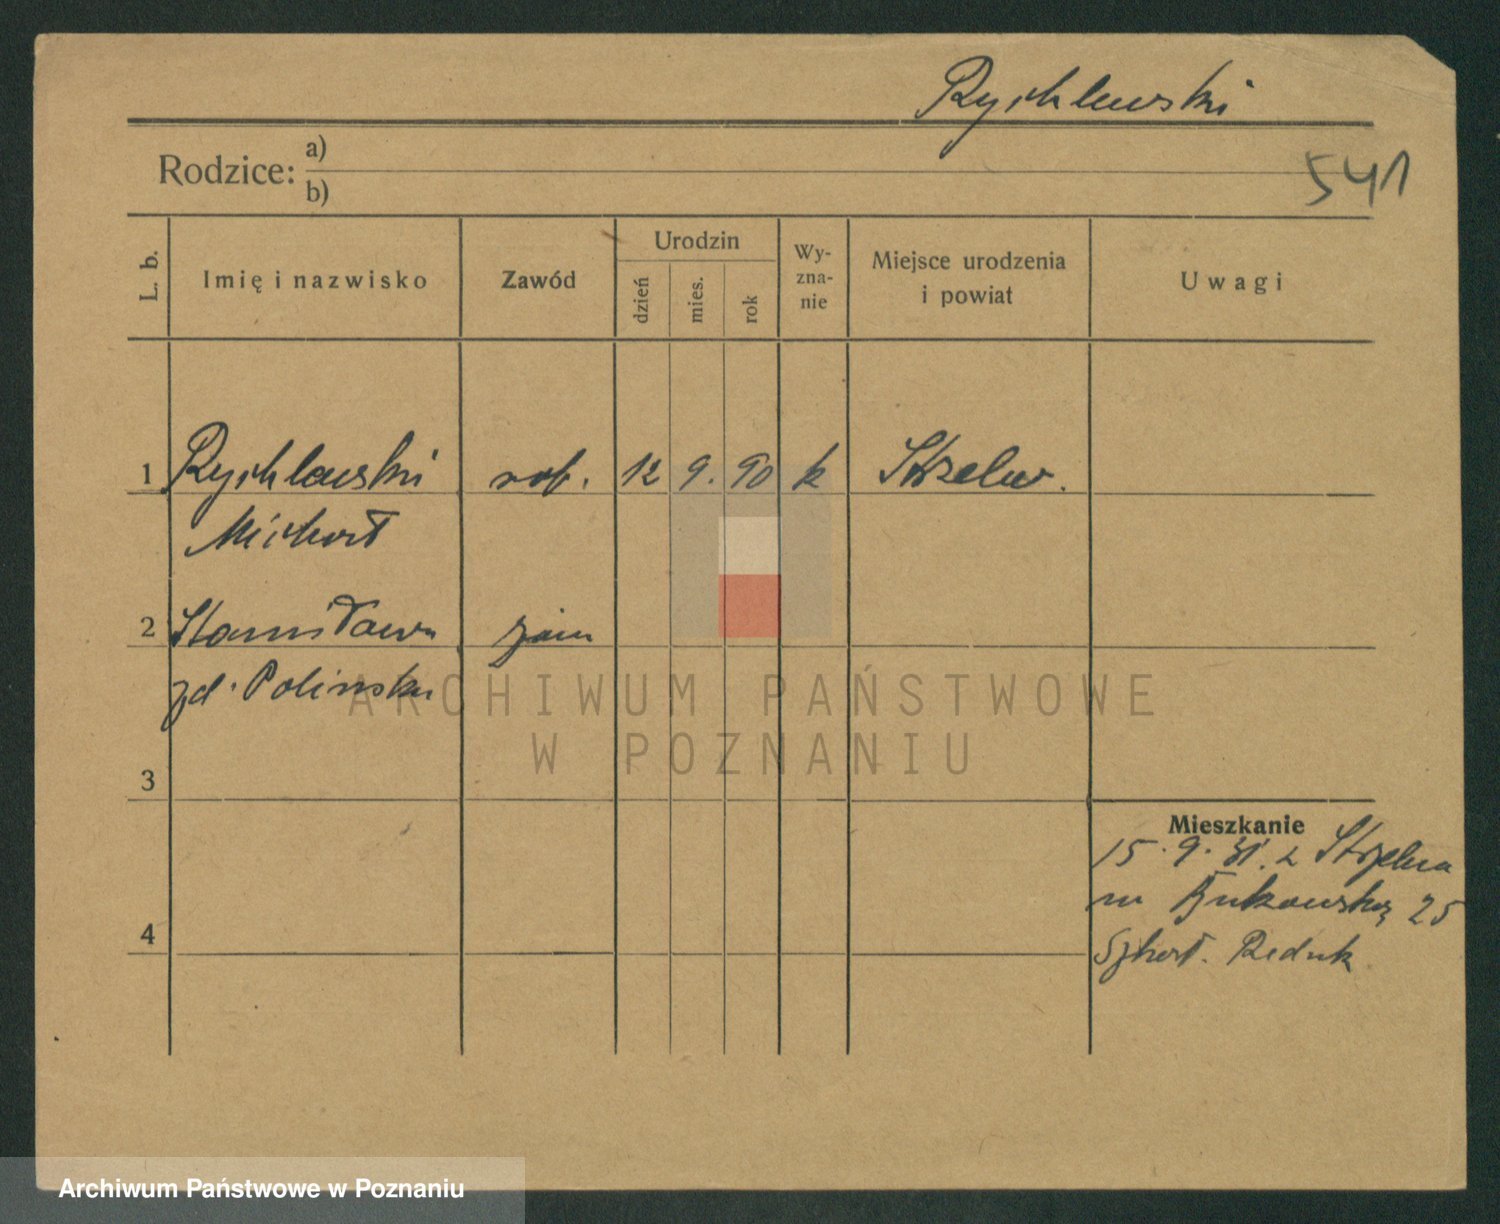 Rychlewski
541
Rodzice: a)
b)
L. b.
Imię i nazwisko
Zawód
Urodzin
dzień
mies.
rok
Wy-
zna-
nie
Miejsce urodzenia
i powiat
Uwagi
1 Rychlewski rob. 12 9. 90 k Strzelno.
Michał
2 Stanisława zam
zd. Polinska
ARCHIWUM PAŃSTWOWE
W POZNANIU
3
Mieszkanie
15. 9. 31. z Strzelna
na Bukowską 25
4
Archiwum Państwowe w Poznaniu